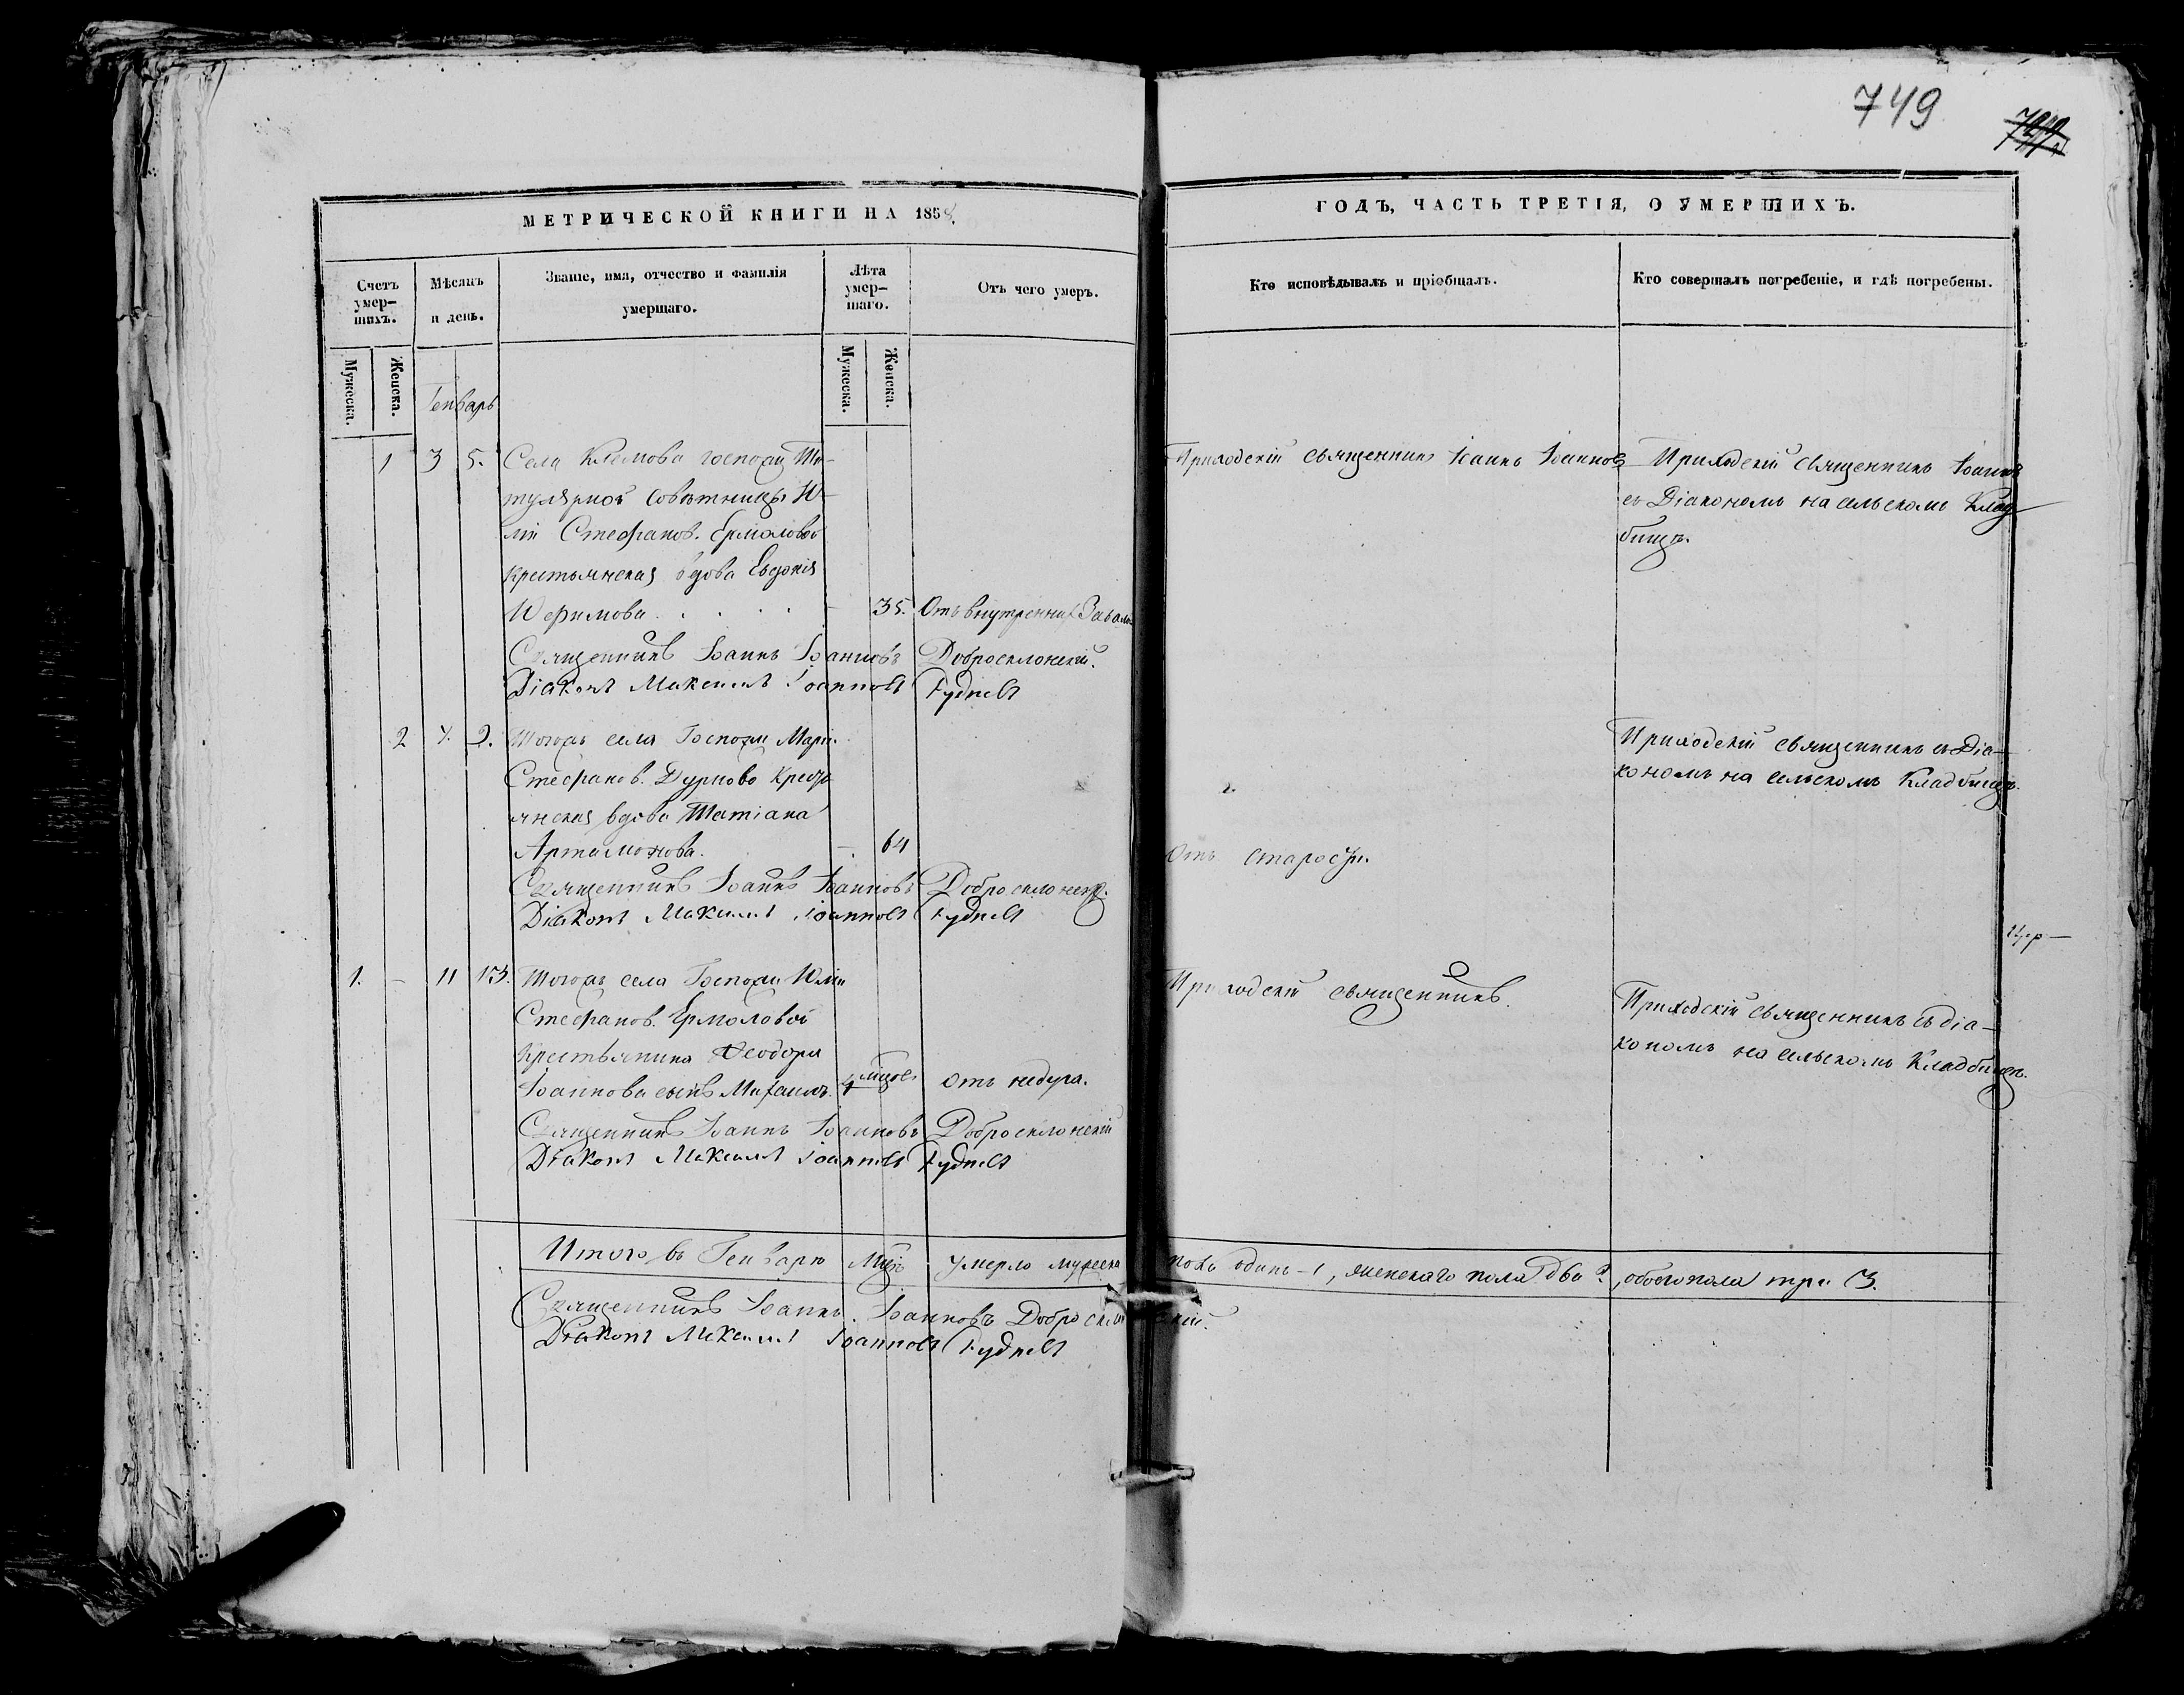 749
МЕТРИЧЕСКОЙ КНИГИ НА 1858
ГОДЪ, ЧАСТЬ ТРЕТІЯ, О УМЕРШИХЪ.
Счетъ умер-
шихъ.
Мѣсяцъ
и день.
Званіе, имя, отчество и фамилія
умершаго.
Лѣта
умер-
шаго.
Отъ чего умеръ.
Кто исповѣдывалъ и пріобщалъ.
Кто совершалъ погребеніе, и гдѣ погребены.
Мужеска.
Женска.
Мужеска.
Женска.
Генварь
1 3 5. Села Клемова госпожи Ти-
тулярной Совѣтницы Ю-
ліи Стефанов. Ермоловой
крестьянская вдова Евдокія
Иефимова - 35. Отъ внутренни
Приходскій священникъ Іоаннъ Іоанновъ
Приходскій священникъ Іоаннъ
съ Діакономъ на сельскомъ Клад-
бищѣ.
Священникъ Іоаннъ Іоанновъ Добросклонскій.
Діаконъ Максимъ Іоанновъ Рудневъ
2 7. 9. Тогожъ села Госпожи Маріи
Стефанов. Дурново Кресть
янская вдова Татіана
Артамонова. - 64
Отъ старости.
Приходскій священникъ съ Діа-
кономъ на сельскомъ Кладбищѣ.
Священникъ Іоаннъ Іоанновъ Добросклонскій.
Діаконъ Максимъ Іоанновъ Рудневъ
1. - 11 13. Тогожъ села Госпожи Юліи
Стефанов. Ермоловой
Крестьянина Ѳеодора
Іоаннова сынъ Михаилъ. 4 мцов. отъ недуга.
Приходскій священникъ.
Приходскій священникъ съ діа-
кономъ на сельскомъ Кладбищѣ.
Священникъ Іоаннъ Іоанновъ Добросклонскій
Діаконъ Максимъ Іоанновъ Рудневъ
Итого въ Генварѣ Мцѣ умерло мужеска пола одинъ - 1, женскаго пола два 2, обоего пола три 3.
Священникъ Іоаннъ Іоанновъ Добросклонскій.
Діаконъ Максимъ Іоанновъ Рудневъ